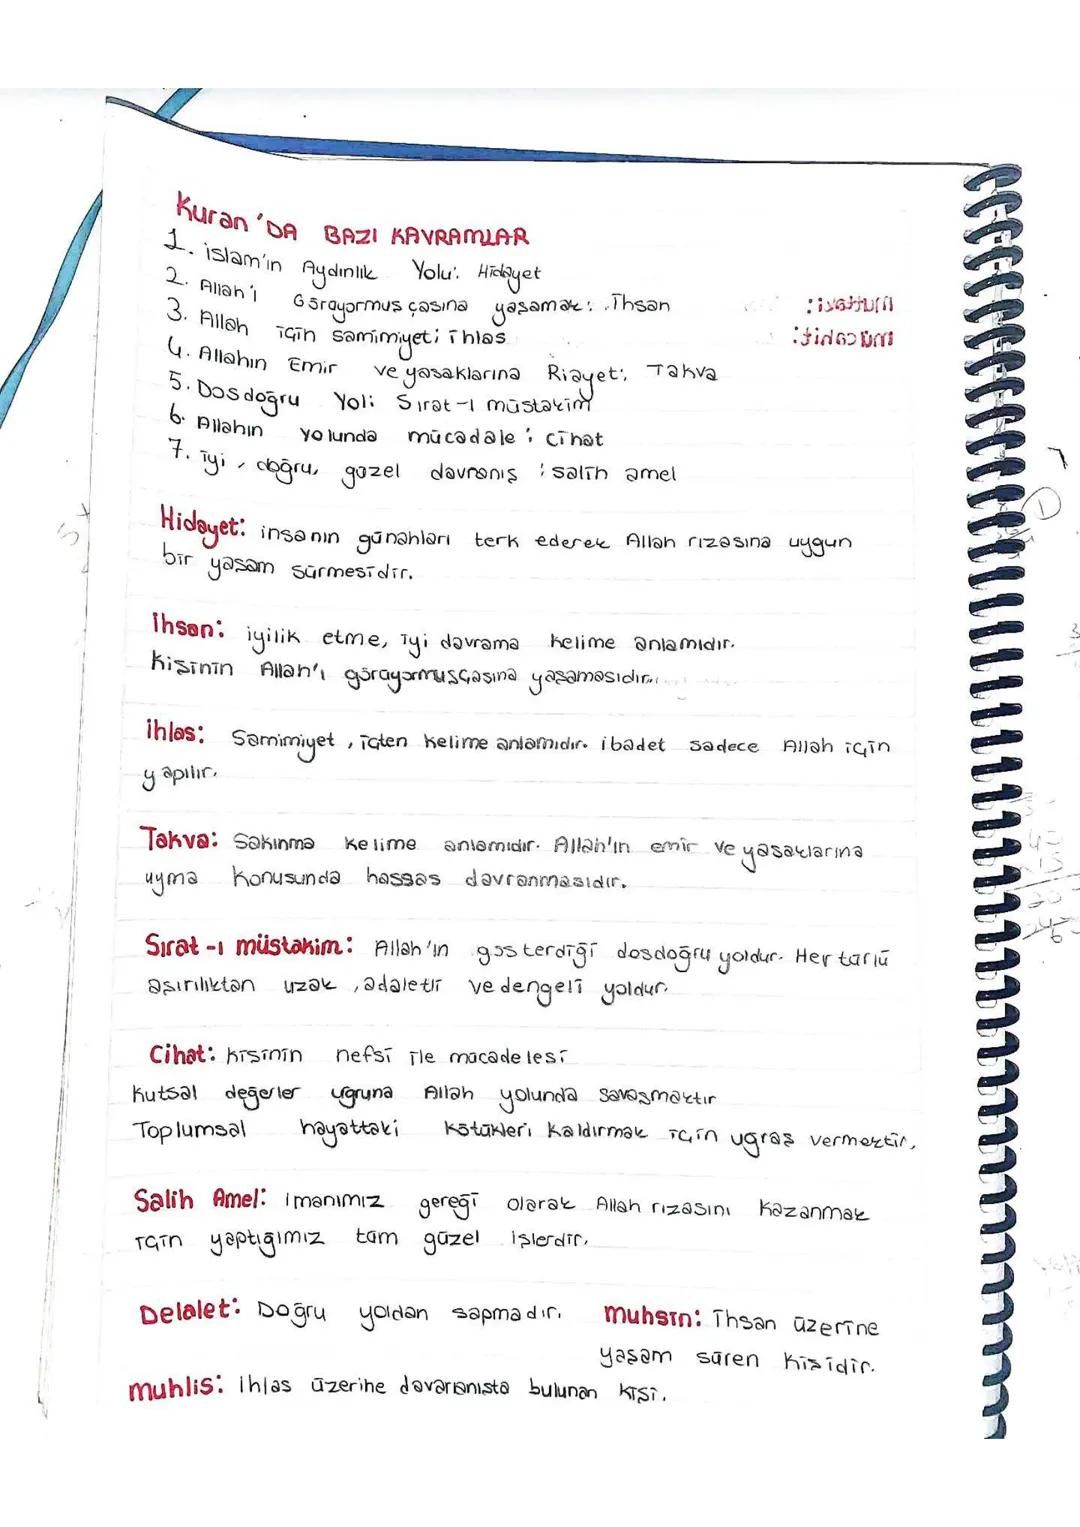 Kuran'DA BAZI KAVRAMLAR
1. islam'ın Aydınlık Yolu: Hidayet
2. Allah'ı Görüyormuşçasına yaşamak: İhsan
3. Allah için samimiyet: ihlas
4. Allahın Emir ve yasaklarına Riayet: Takva
5. Dosdoğru Yol: Sırat-ı müstakim
6. Allahın yolunda mücadale: cihat
7. iyi, doğru, güzel davranış: salih amel
müttaki:
mücahit:
Hidayet: insanın günahları terk ederek Allah rızasına uygun
bir yaşam sürmesidir.
ihsan: iyilik etme, iyi davrama kelime anlamıdır.
Kişinin Allah'ı görüyormuşçasına yaşamasıdır.
ihlas: Samimiyet, içten kelime anlamıdır. ibadet sadece Allah için
yapılır.
Takva: Sakınma kelime anlamıdır. Allah'ın emir ve yasaklarına
uyma konusunda hassas davranmasıdır.
Sırat-ı müstakim: Allah'ın gösterdiği dosdoğru yoldur. Her türlü
aşırılıktan uzak, adaletli ve dengeli yoldur.
Cihat: kişinin nefsi ile mücadelesi
Kutsal değerler uğruna Allah yolunda savaşmaktır
Toplumsal hayattaki kötükleri kaldırmak için uğraş vermektir.
Salih Amel: imanımız gereği olarak Allah rızasını kazanmak
için yaptığımız tüm güzel işlerdir.
Delalet: Doğru yoldan sapmadır. Muhsin: ihsan üzerine
yaşam süren kişidir.
muhlis: ihlas üzerine davaranışta bulunan kişi.